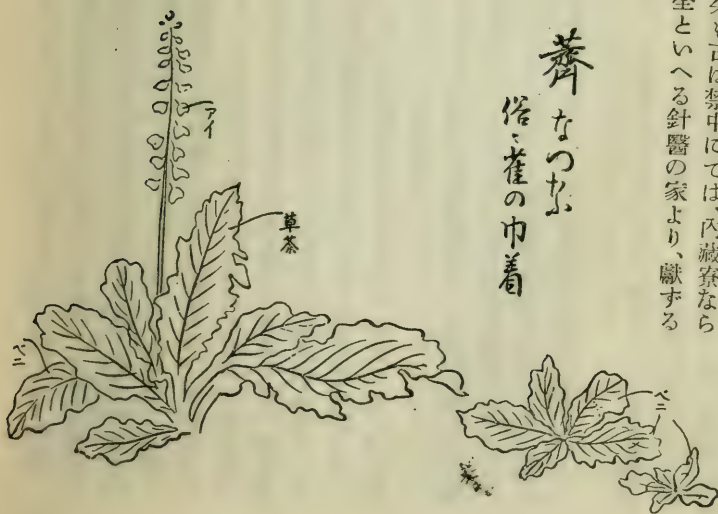 は禁中にては、内藏寮なら
といへる針醫の家より、獻ずる
薺 なつな
俗ニ雀の巾着
アイ
草茶
ベニ
ベニ